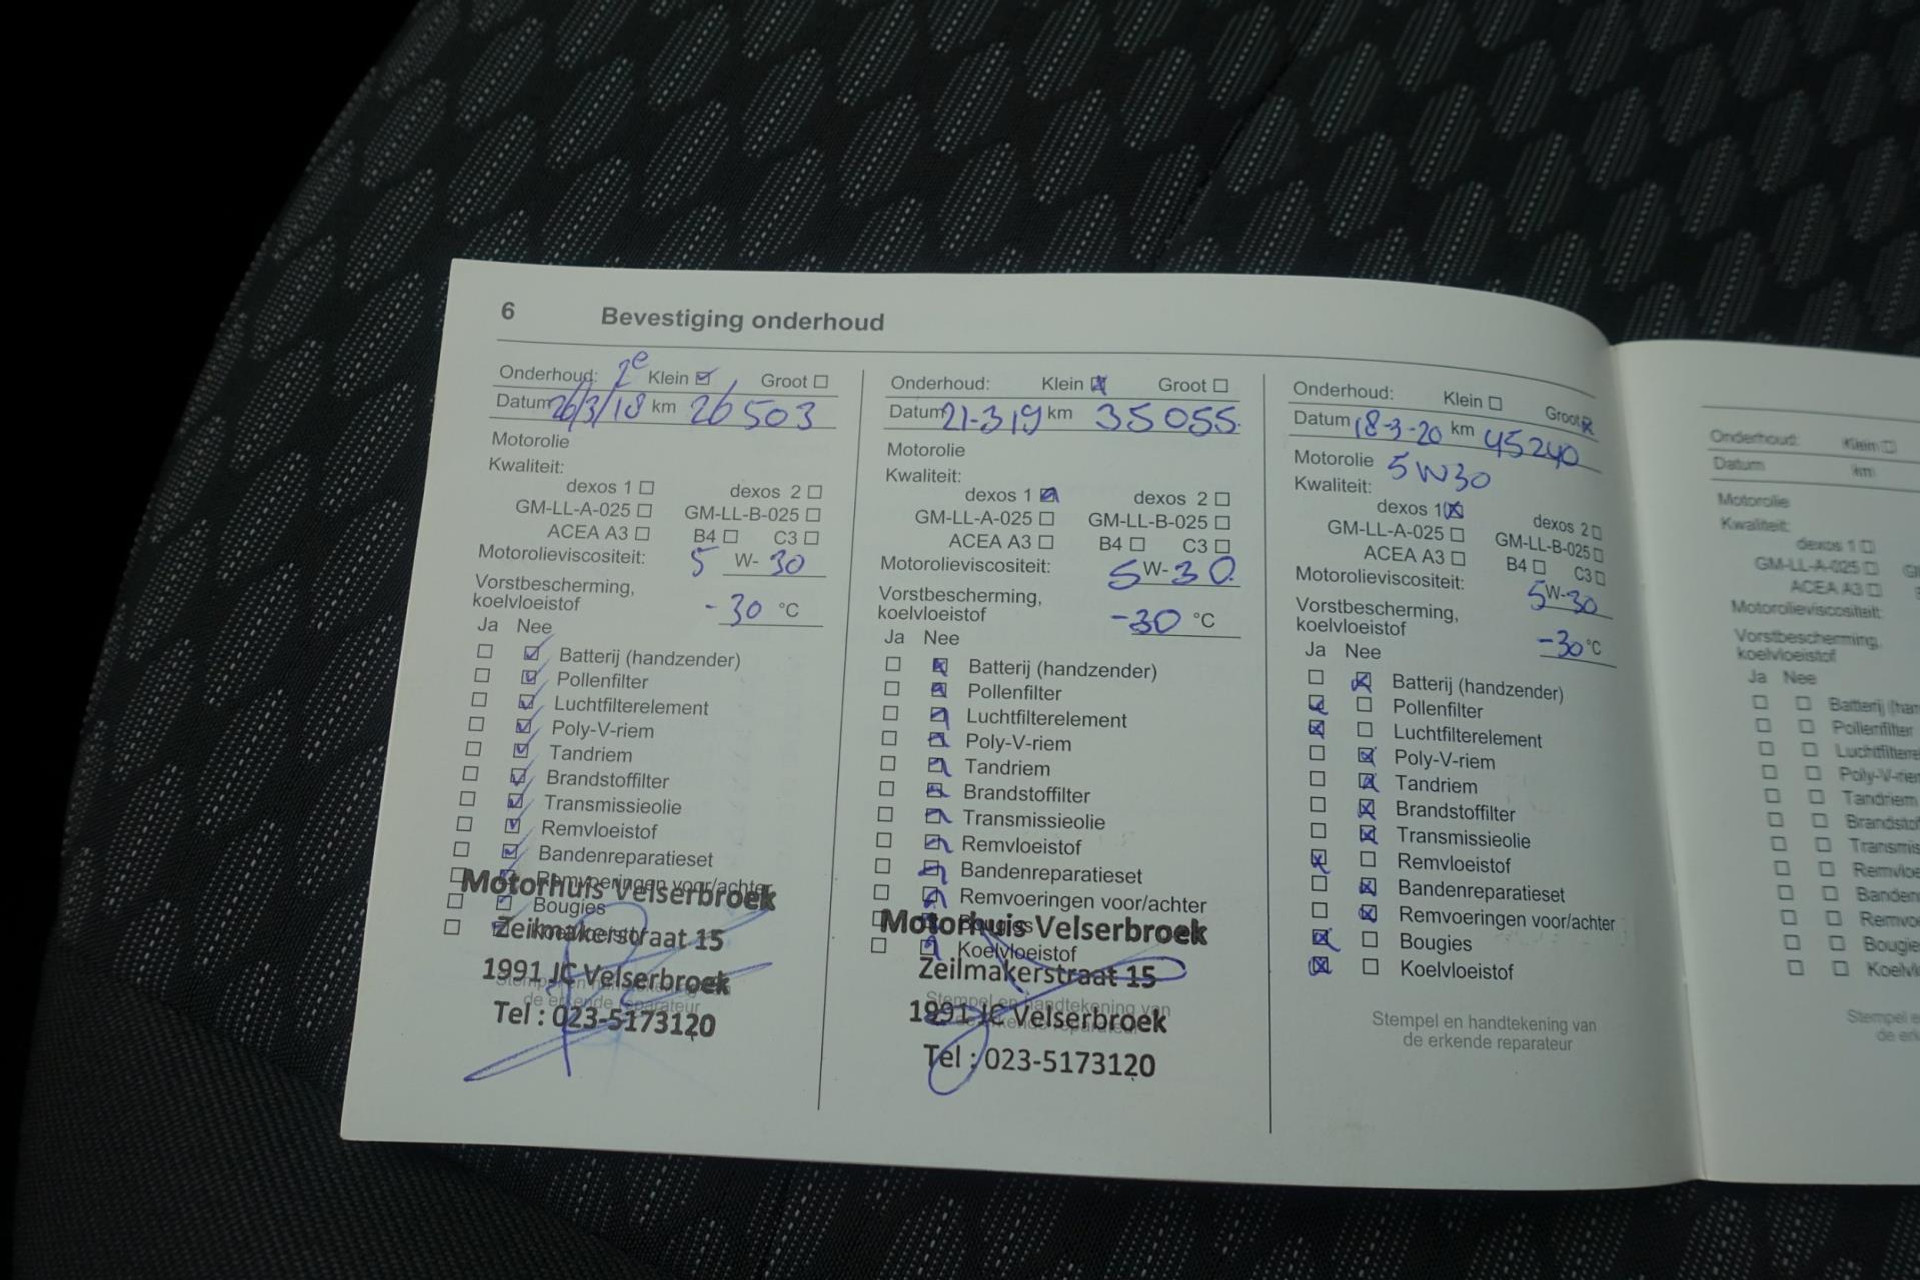 6 Bevestiging onderhoud
Onderhoud: 2e Klein Groot
Datum 26/3/18 km 26503
Motorolie
Kwaliteit:
dexos 1 dexos 2
GM-LL-A-025 GM-LL-B-025
ACEA A3 B4 C3
Motorolieviscositeit: 5 W-30
Vorstbescherming,
koelvloeistof -30 °C
Ja Nee
Batterij (handzender)
Pollenfilter
Luchtfilterelement
Poly-V-riem
Tandriem
Brandstoffilter
Transmissieolie
Remvloeistof
Bandenreparatieset
Remvoeringen voor/achter
Motorhuis Velserbroek
Bougies
Zeilmakerstraat 15
Koelvloeistof
1991 JC Velserbroek
Stempel en handtekening van
de erkende reparateur
Tel : 023-5173120
Onderhoud: Klein Groot
Datum 21-3 19 km 35055
Motorolie
Kwaliteit:
dexos 1 dexos 2
GM-LL-A-025 GM-LL-B-025
ACEA A3 B4 C3
Motorolieviscositeit: 5W-30
Vorstbescherming,
koelvloeistof -30 °C
Ja Nee
Batterij (handzender)
Pollenfilter
Luchtfilterelement
Poly-V-riem
Tandriem
Brandstoffilter
Transmissieolie
Remvloeistof
Bandenreparatieset
Remvoeringen voor/achter
Bougies
Motorhuis Velserbroek
Koelvloeistof
Zeilmakerstraat 15
Stempel en handtekening van
de erkende reparateur
1991 JC Velserbroek
Tel : 023-5173120
Onderhoud: Klein Groot
Datum 18-3-20 km 45240
Motorolie 5W30
Kwaliteit:
dexos 1 dexos 2
GM-LL-A-025 GM-LL-B-025
ACEA A3 B4 C3
Motorolieviscositeit: 5W-30
Vorstbescherming,
koelvloeistof -30 °C
Ja Nee
Batterij (handzender)
Pollenfilter
Luchtfilterelement
Poly-V-riem
Tandriem
Brandstoffilter
Transmissieolie
Remvloeistof
Bandenreparatieset
Remvoeringen voor/achter
Bougies
Koelvloeistof
Stempel en handtekening van
de erkende reparateur
Onderhoud: Klein
Datum km
Motorolie
Kwaliteit:
dexos 1
GM-LL-A-025 G
ACEA A3
Motorolieviscositeit:
Vorstbescherming,
koelvloeistof
Ja Nee
Batterij (han
Pollenfilter
Luchtfiltere
Poly-V-rie
Tandriem
Brandsto
Transmis
Remvloe
Banden
Remvo
Bougie
Koelvl
Stempel e
de erk